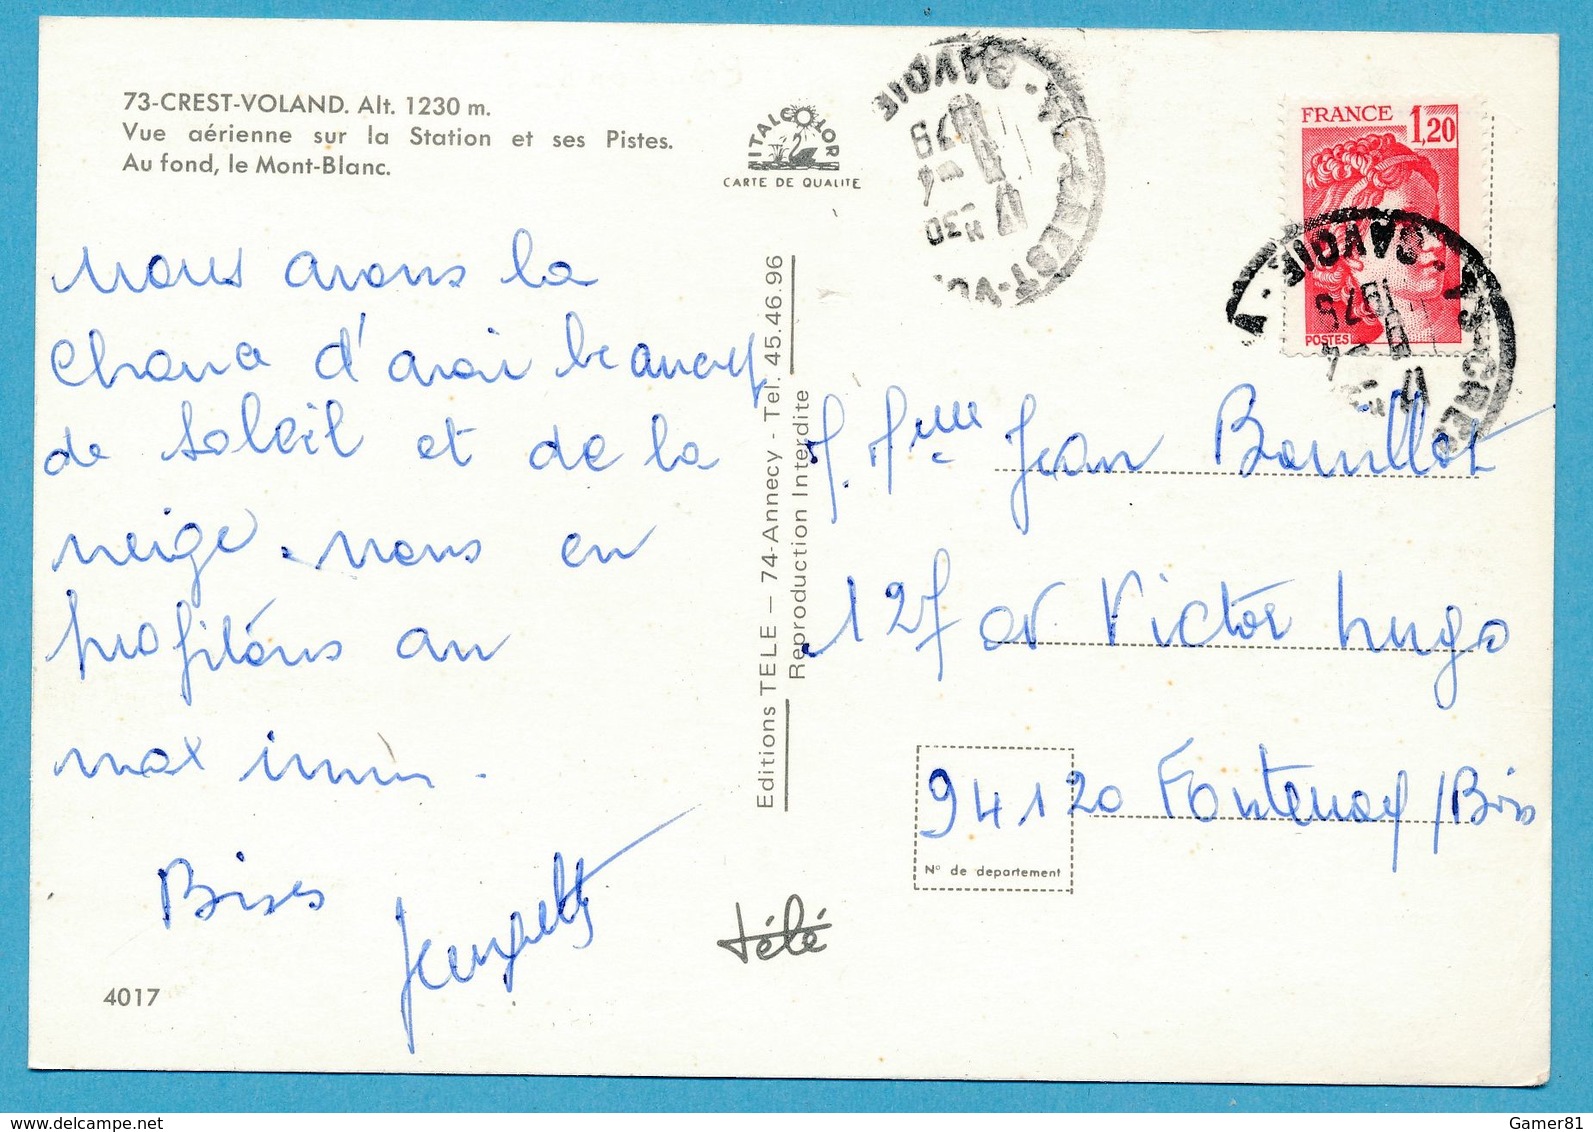 73-CREST-VOLAND. Alt. 1230 m.
Vue aérienne sur la Station et ses Pistes.
Au fond, le Mont-Blanc.
nous avons la
chance d'avoir beaucoup
de soleil et de la
neige. nous en
profitons au
maximum.
Bises
4017
NITALCOLOR
CARTE DE QUALITE
Editions TELE – 74-Annecy - Tel. 45.46.96
Reproduction Interdite
télé
SAVOIE
FRANCE 1,20
POSTES
SAVOIE
M. Mme Jean Bouillot
127 av Victor Hugo
94120 Fontenay/Bois
N° de departement
Gamer81